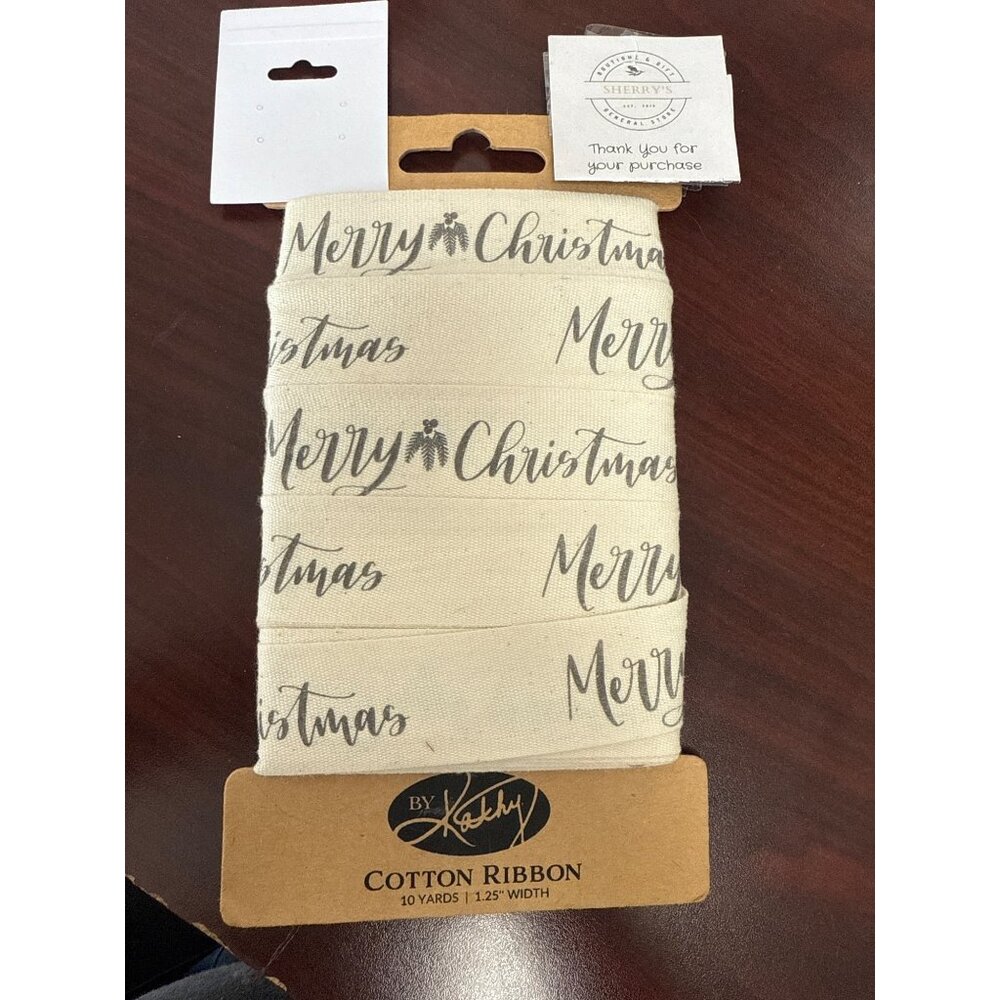 BOUTIQUE & GIFT
SHERRY'S
EST. 2019
GENERAL STORE
Thank you for
your purchase
Merry Christma
istmas Merry
Merry Christmas
stmas Merry
istmas Merry
BY Kathy
COTTON RIBBON
10 YARDS | 1.25" WIDTH